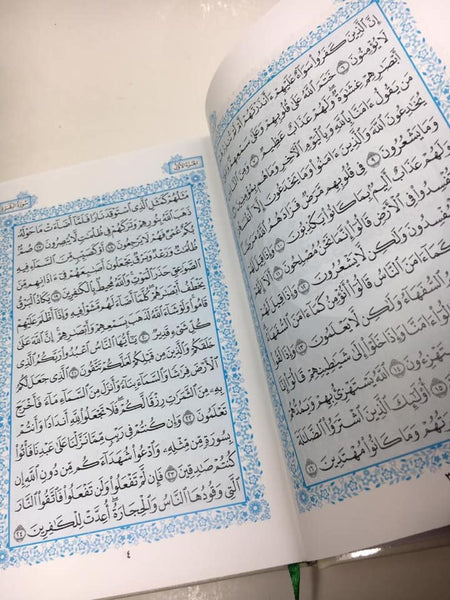 إِنَّ ٱلَّذِينَ كَفَرُوا۟ سَوَآءٌ عَلَيْهِمْ ءَأَنذَرْتَهُمْ أَمْ
لَا يُؤْمِنُونَ ٦ خَتَمَ ٱللَّهُ عَلَىٰ قُلُوبِهِمْ وَعَلَىٰ سَمْعِهِمْ
أَبْصَٰرِهِمْ غِشَٰوَةٌ وَلَهُمْ عَذَابٌ عَظِيمٌ ٧
مَن يَقُولُ ءَامَنَّا بِٱللَّهِ وَبِٱلْيَوْمِ ٱلْءَاخِرِ وَمَا هُم
يُخَٰدِعُونَ ٱللَّهَ وَٱلَّذِينَ ءَامَنُوا۟ وَمَا يَخْدَعُونَ
وَمَا يَشْعُرُونَ ٩ فِى قُلُوبِهِم مَّرَضٌ فَزَادَهُمُ ٱللَّهُ
وَلَهُمْ عَذَابٌ أَلِيمٌۢ بِمَا كَانُوا۟ يَكْذِبُونَ ١٠
تُفْسِدُوا۟ فِى ٱلْأَرْضِ قَالُوٓا۟ إِنَّمَا نَحْنُ مُصْلِحُونَ ١١
ٱلْمُفْسِدُونَ وَلَٰكِن لَّا يَشْعُرُونَ ١٢ وَإِذَا قِيلَ لَهُمْ
كَمَآ ءَامَنَ ٱلنَّاسُ قَالُوٓا۟ أَنُؤْمِنُ كَمَآ ءَامَنَ ٱلسُّفَهَآءُ
ٱلسُّفَهَآءُ وَلَٰكِن لَّا يَعْلَمُونَ ١٣ وَإِذَا
قَالُوٓا۟ ءَامَنَّا وَإِذَا خَلَوْا۟ إِلَىٰ شَيَٰطِينِهِمْ قَالُوٓا۟ إِنَّا
مُسْتَهْزِءُونَ ١٤ ٱللَّهُ يَسْتَهْزِئُ بِهِمْ
يَعْمَهُونَ ١٥ أُو۟لَٰٓئِكَ ٱلَّذِينَ ٱشْتَرَوُا۟ ٱلضَّلَٰلَةَ
تِّجَٰرَتُهُمْ وَمَا كَانُوا۟ مُهْتَدِينَ ١٦
مَثَلُهُمْ كَمَثَلِ ٱلَّذِى ٱسْتَوْقَدَ نَارًا فَلَمَّآ أَضَآءَتْ مَا حَوْلَهُۥ
ذَهَبَ ٱللَّهُ بِنُورِهِمْ وَتَرَكَهُمْ فِى ظُلُمَٰتٍ لَّا يُبْصِرُونَ ١٧ صُمٌّۢ
بُكْمٌ عُمْىٌ فَهُمْ لَا يَرْجِعُونَ ١٨ أَوْ كَصَيِّبٍ مِّنَ ٱلسَّمَآءِ فِيهِ
ظُلُمَٰتٌ وَرَعْدٌ وَبَرْقٌ يَجْعَلُونَ أَصَٰبِعَهُمْ فِىٓ ءَاذَانِهِم مِّنَ
ٱلصَّوَٰعِقِ حَذَرَ ٱلْمَوْتِ وَٱللَّهُ مُحِيطٌۢ بِٱلْكَٰفِرِينَ ١٩ يَكَادُ ٱلْبَرْقُ
يَخْطَفُ أَبْصَٰرَهُمْ كُلَّمَآ أَضَآءَ لَهُم مَّشَوْا۟ فِيهِ وَإِذَآ أَظْلَمَ عَلَيْهِمْ
قَامُوا۟ وَلَوْ شَآءَ ٱللَّهُ لَذَهَبَ بِسَمْعِهِمْ وَأَبْصَٰرِهِمْ إِنَّ ٱللَّهَ عَلَىٰ
كُلِّ شَىْءٍ قَدِيرٌ ٢٠ يَٰٓأَيُّهَا ٱلنَّاسُ ٱعْبُدُوا۟ رَبَّكُمُ ٱلَّذِى
خَلَقَكُمْ وَٱلَّذِينَ مِن قَبْلِكُمْ لَعَلَّكُمْ تَتَّقُونَ ٢١ ٱلَّذِى جَعَلَ لَكُمُ
ٱلْأَرْضَ فِرَٰشًا وَٱلسَّمَآءَ بِنَآءً وَأَنزَلَ مِنَ ٱلسَّمَآءِ مَآءً فَأَخْرَجَ
بِهِۦ مِنَ ٱلثَّمَرَٰتِ رِزْقًا لَّكُمْ فَلَا تَجْعَلُوا۟ لِلَّهِ أَندَادًا وَأَنتُمْ
تَعْلَمُونَ ٢٢ وَإِن كُنتُمْ فِى رَيْبٍ مِّمَّا نَزَّلْنَا عَلَىٰ عَبْدِنَا فَأْتُوا۟
بِسُورَةٍ مِّن مِّثْلِهِۦ وَٱدْعُوا۟ شُهَدَآءَكُم مِّن دُونِ ٱللَّهِ إِن
كُنتُمْ صَٰدِقِينَ ٢٣ فَإِن لَّمْ تَفْعَلُوا۟ وَلَن تَفْعَلُوا۟ فَٱتَّقُوا۟ ٱلنَّارَ
ٱلَّتِى وَقُودُهَا ٱلنَّاسُ وَٱلْحِجَارَةُ أُعِدَّتْ لِلْكَٰفِرِينَ ٢٤
٤